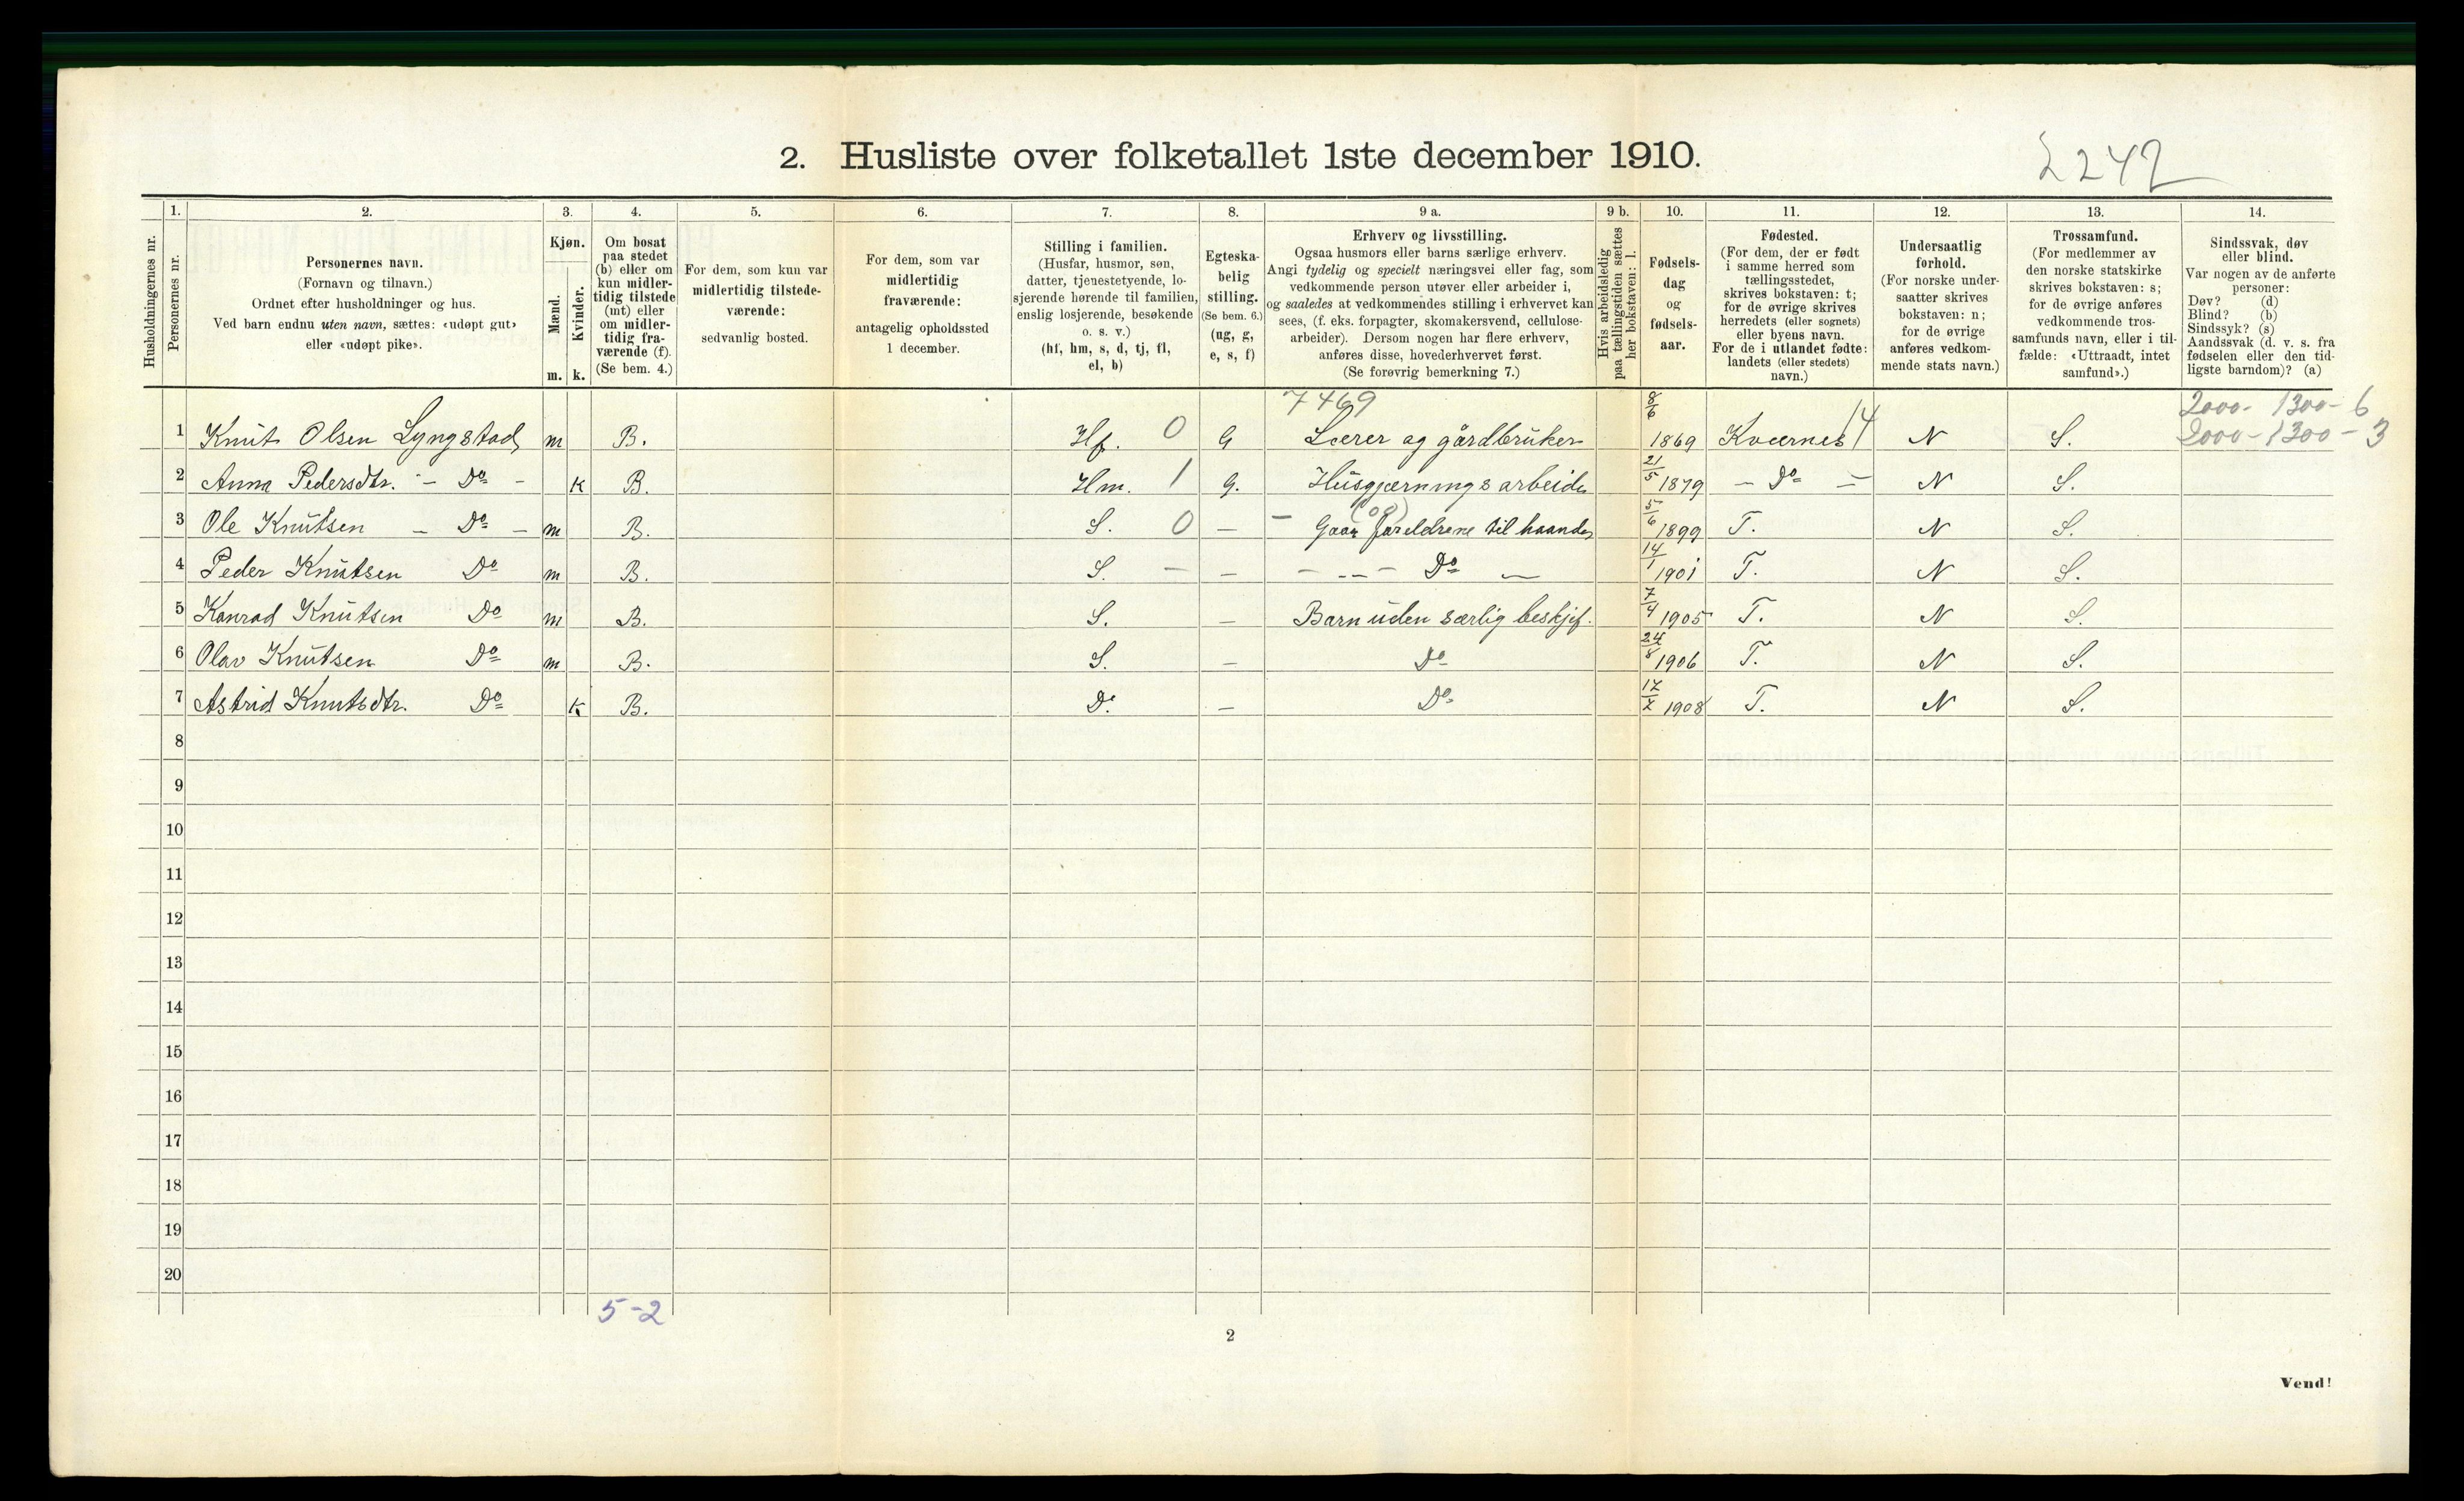 2. Husliste over folketallet 1ste december 1910.
2242
Husholdningernes nr.
1. Personernes nr.
2. Personernes navn. (Fornavn og tilnavn.) Ordnet efter husholdninger og hus. Ved barn endnu uten navn, sættes: «udøpt gut» eller «udøpt pike».
3. Kjøn. Mænd. m. Kvinder. k.
4. Om bosat paa stedet (b) eller om kun midlertidig tilstede (mt) eller om midlertidig fraværende (f). (Se bem. 4.)
5. For dem, som kun var midlertidig tilstedeværende: sedvanlig bosted.
6. For dem, som var midlertidig fraværende: antagelig opholdssted 1 december.
7. Stilling i familien. (Husfar, husmor, søn, datter, tjenestetyende, losjerende hørende til familien, enslig losjerende, besøkende o. s. v.) (hf, hm, s, d, tj, fl, el, b)
8. Egteskabelig stilling. (Se bem. 6.) (ug, g, e, s, f)
9 a. Erhverv og livsstilling. Ogsaa husmors eller barns særlige erhverv. Angi tydelig og specielt næringsvei eller fag, som vedkommende person utøver eller arbeider i, og saaledes at vedkommendes stilling i erhvervet kan sees, (f. eks. forpagter, skomakersvend, cellulosearbeider). Dersom nogen har flere erhverv, anføres disse, hovederhvervet først. (Se forøvrig bemerkning 7.)
9 b. Hvis arbeidsledig paa tællingstiden sættes her bokstaven: l.
10. Fødselsdag og fødselsaar.
11. Fødested. (For dem, der er født i samme herred som tællingsstedet, skrives bokstaven: t; for de øvrige skrives herredets (eller sognets) eller byens navn. For de i utlandet fødte: landets (eller stedets) navn.)
12. Undersaatlig forhold. (For norske undersaatter skrives bokstaven: n; for de øvrige anføres vedkommende stats navn.)
13. Trossamfund. (For medlemmer av den norske statskirke skrives bokstaven: s; for de øvrige anføres vedkommende trossamfunds navn, eller i tilfælde: «Uttraadt, intet samfund».)
14. Sindssvak, døv eller blind. Var nogen av de anførte personer: Døv? (d) Blind? (b) Sindssyk? (s) Aandssvak (d. v. s. fra fødselen eller den tidligste barndom)? (a)
7469 2000- 1300- 6
1 Knut Olsen Lyngstad m B. Hf. 0 G Lærer og gårdbruker 8/6 1869 Kværnes 14 N S. 2000-1300-3
2 Anna Pedersdtr. - Do - k B. Hm. 1 G. Husgjærningsarbeide 21/5 1879 - Do - N S.
3 Ole Knutsen - Do - m B. S. 0 - - Gaar foreldrene til haande 5/6 1899 T. N S.
4 Peder Knutsen Do m B. S. - - - -- - Do - 14/1 1901 T. N S.
5 Konrad Knutsen Do m B. S. - Barn uden særlig beskjef. 7/4 1905 T. N S.
6 Olav Knutsen Do m B. S. - Do 24/8 1906 T. N S.
7 Astrid Knutsdtr. Do k B. D. - Do 17/7 1908 T. N S.
8
9
10
11
12
13
14
15
16
17
18
19
20
5-2
2
Vend!